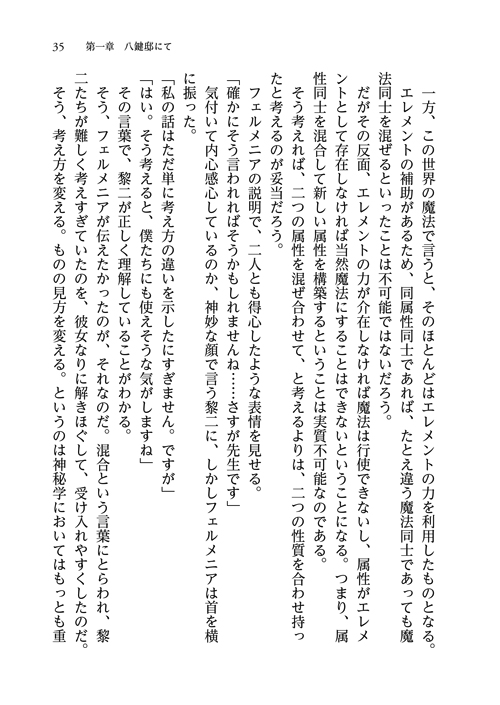 35　第一章　八鍵邸にて
一方、この世界の魔法で言うと、そのほとんどはエレメントの力を利用したものとなる。
エレメントの補助があるため、同属性同士であれば、たとえ違う魔法同士であっても魔
法同士を混ぜるといったことは不可能ではないだろう。
だがその反面、エレメントの力が介在しなければ魔法は行使できないし、属性がエレメ
ントとして存在しなければ当然魔法にすることはできないということになる。つまり、属
性同士を混合して新しい属性を構築するということは実質不可能なのである。
そう考えれば、二つの属性を混ぜ合わせて、と考えるよりは、二つの性質を合わせ持っ
たと考えるのが妥当だろう。
フェルメニアの説明で、二人とも得心したような表情を見せる。
「確かにそう言われればそうかもしれませんね……さすが先生です」
気付いて内心感心しているのか、神妙な顔で言う黎二に、しかしフェルメニアは首を横
に振った。
「私の話はただ単に考え方の違いを示したにすぎません。ですが」
「はい。そう考えると、僕たちにも使えそうな気がしますね」
その言葉で、黎二が正しく理解していることがわかる。
そう、フェルメニアが伝えたかったのが、それなのだ。混合という言葉にとらわれ、黎
二たちが難しく考えすぎていたのを、彼女なりに解きほぐして、受け入れやすくしたのだ。
そう、考え方を変える。ものの見方を変える。というのは神秘学においてはもっとも重